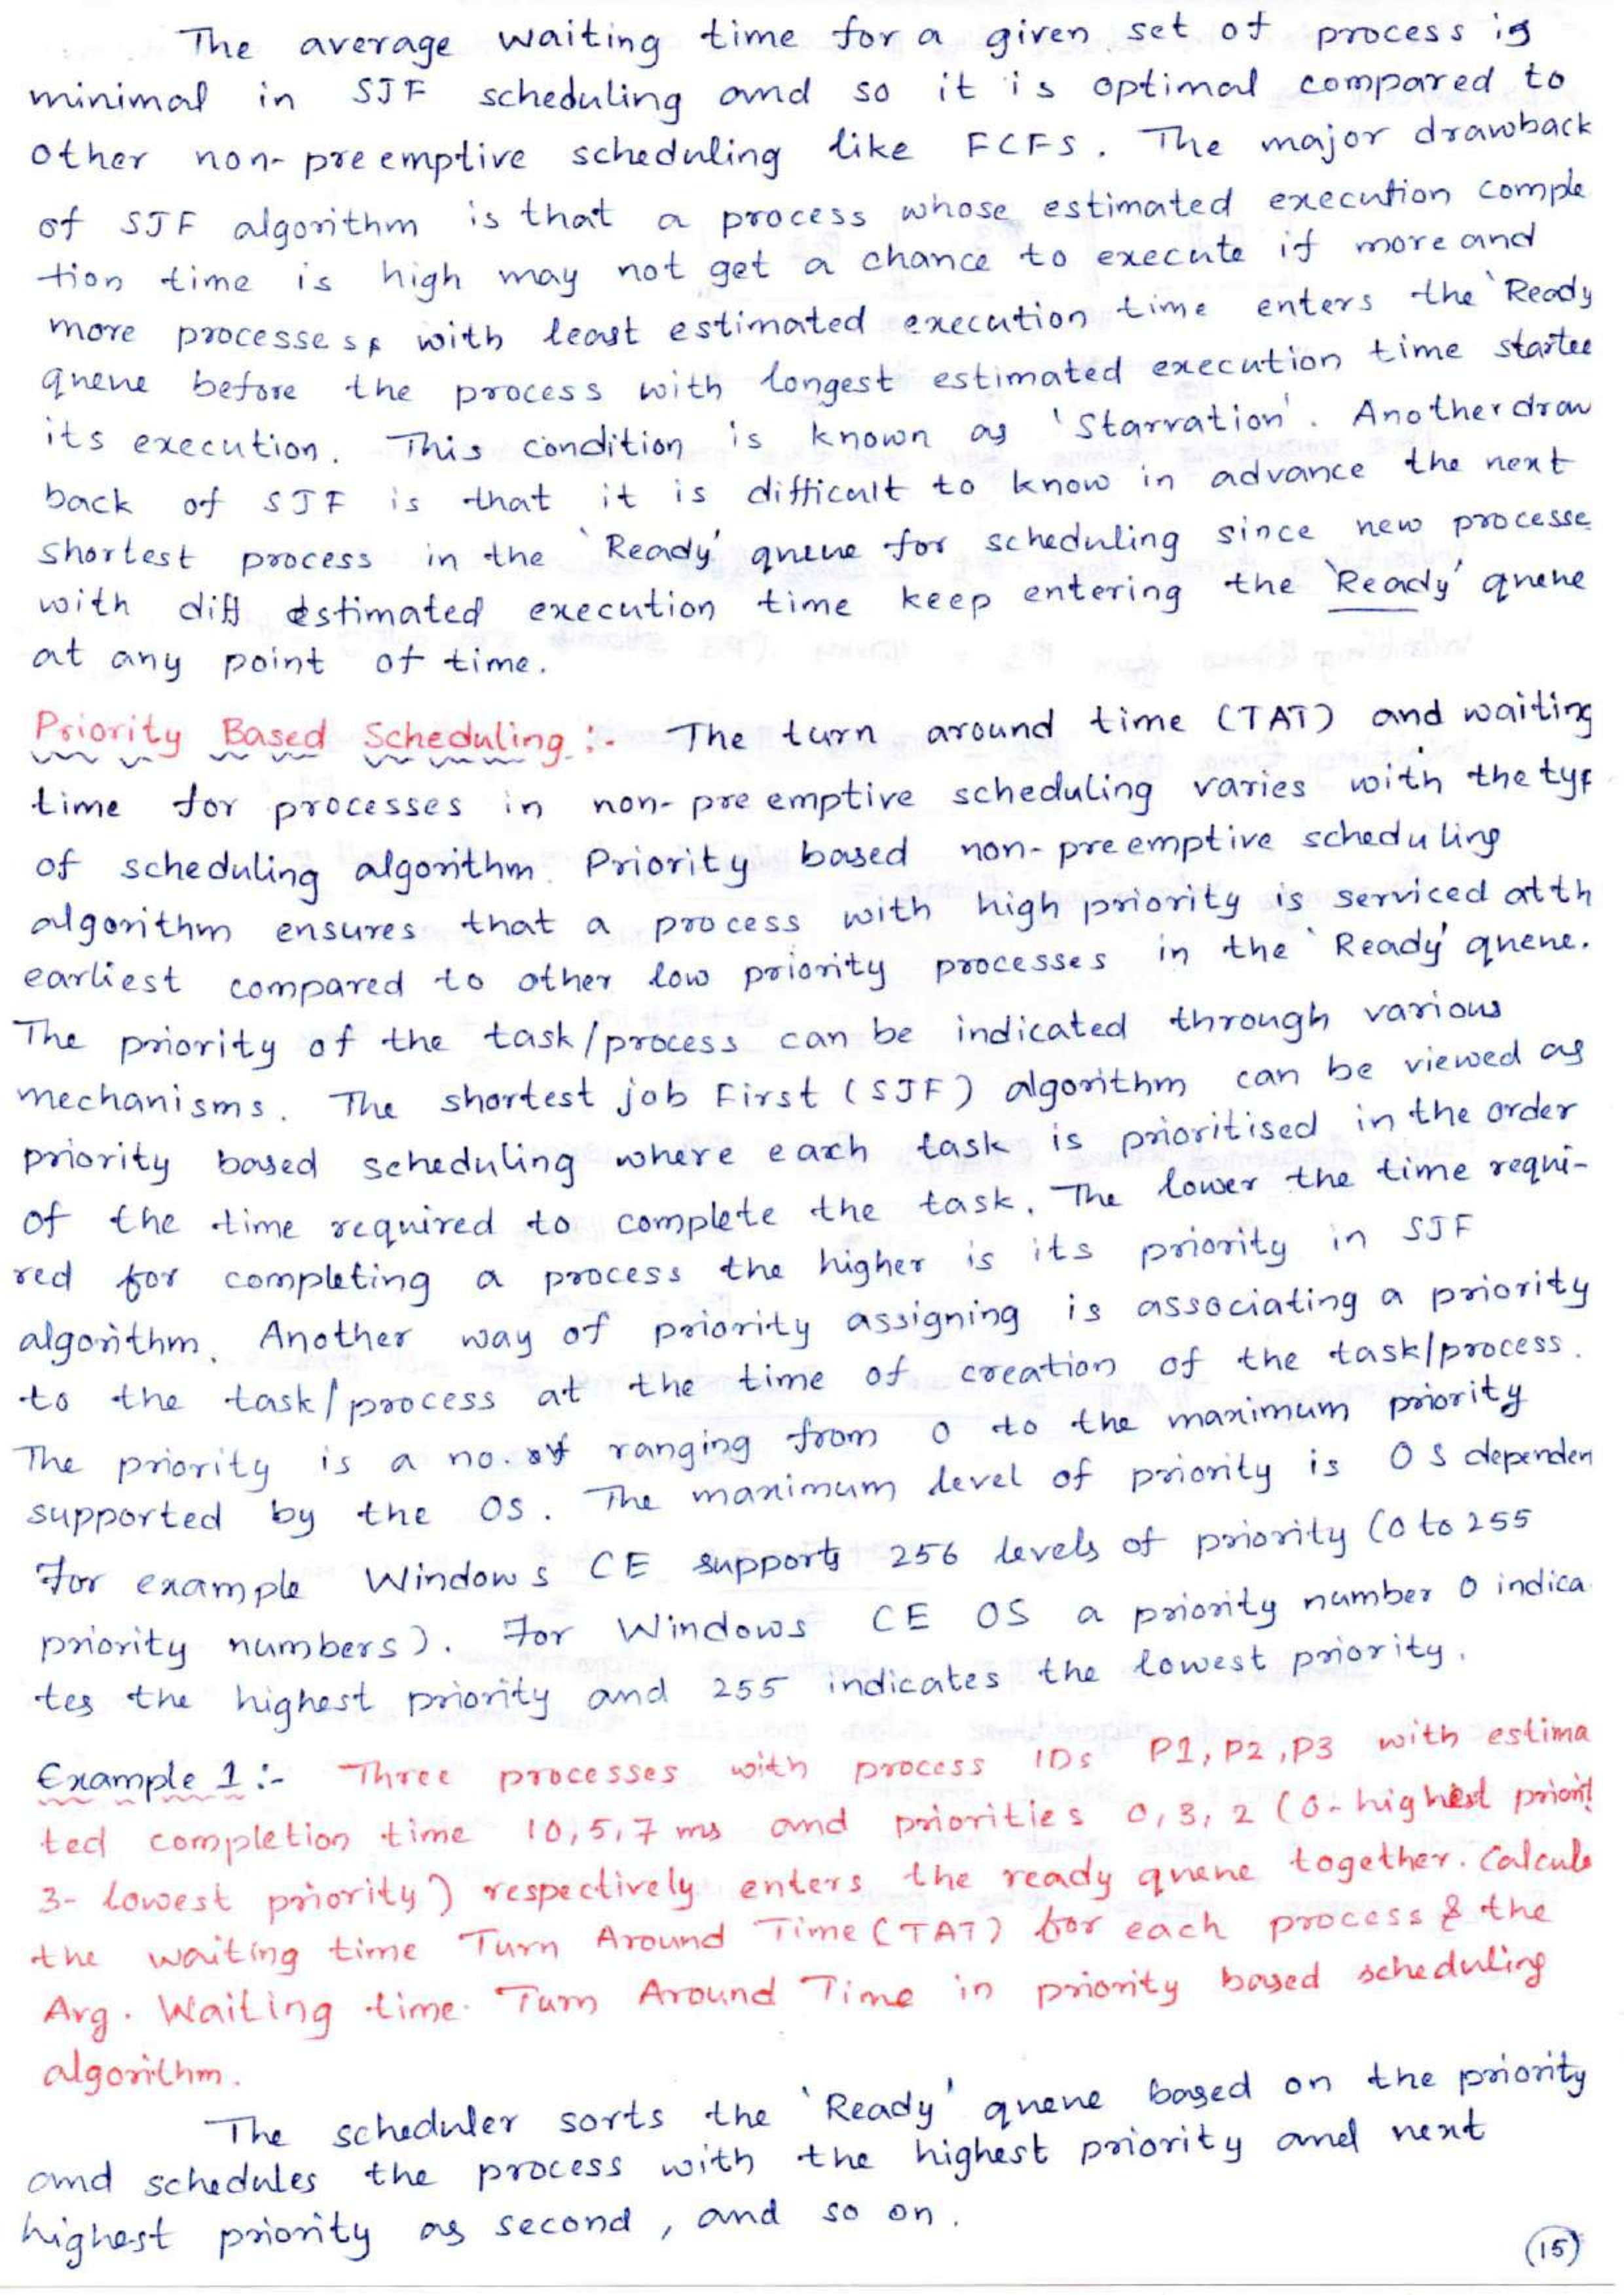 The average waiting time for a given set of process is
minimal in SJF scheduling and so it is optimal compared to
other non-preemptive scheduling like FCFS. The major drawback
of SJF algorithm is that a process whose estimated execution comple
tion time is high may not get a chance to execute if more and
more processes with least estimated execution time enters the 'Ready
queue before the process with longest estimated execution time starte
its execution. This condition is known as 'Starvation'. Another draw
back of SJF is that it is difficult to know in advance the next
shortest process in the 'Ready' queue for scheduling since new processe
with diff estimated execution time keep entering the 'Ready' queue
at any point of time.
Priority Based Scheduling :- The turn around time (TAT) and waiting
time for processes in non-preemptive scheduling varies with the typ
of scheduling algorithm. Priority based non-preemptive scheduling
algorithm ensures that a process with high priority is serviced at th
earliest compared to other low priority processes in the 'Ready' queue.
The priority of the task/process can be indicated through various
mechanisms. The shortest job First (SJF) algorithm can be viewed as
priority based scheduling where each task is prioritised in the order
of the time required to complete the task. The lower the time requi-
red for completing a process the higher is its priority in SJF
algorithm. Another way of priority assigning is associating a priority
to the task/process at the time of creation of the task/process.
The priority is a no. of ranging from 0 to the maximum priority
supported by the OS. The maximum level of priority is OS dependen
For example Windows CE supports 256 levels of priority (0 to 255
priority numbers). For Windows CE OS a priority number 0 indica
tes the highest priority and 255 indicates the lowest priority.
Example 1 :- Three processes with process IDs P1, P2, P3 with estima
ted completion time 10, 5, 7 ms and priorities 0, 3, 2 (0- highest priorit
3- lowest priority) respectively enters the ready queue together. Calcula
the waiting time Turn Around Time (TAT) for each process & the
Avg. Waiting time. Turn Around Time in priority based scheduling
algorithm.
The scheduler sorts the 'Ready' queue based on the priority
and schedules the process with the highest priority and next
highest priority as second, and so on.
(15)